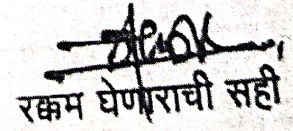 रक्कम घेणाराची सही